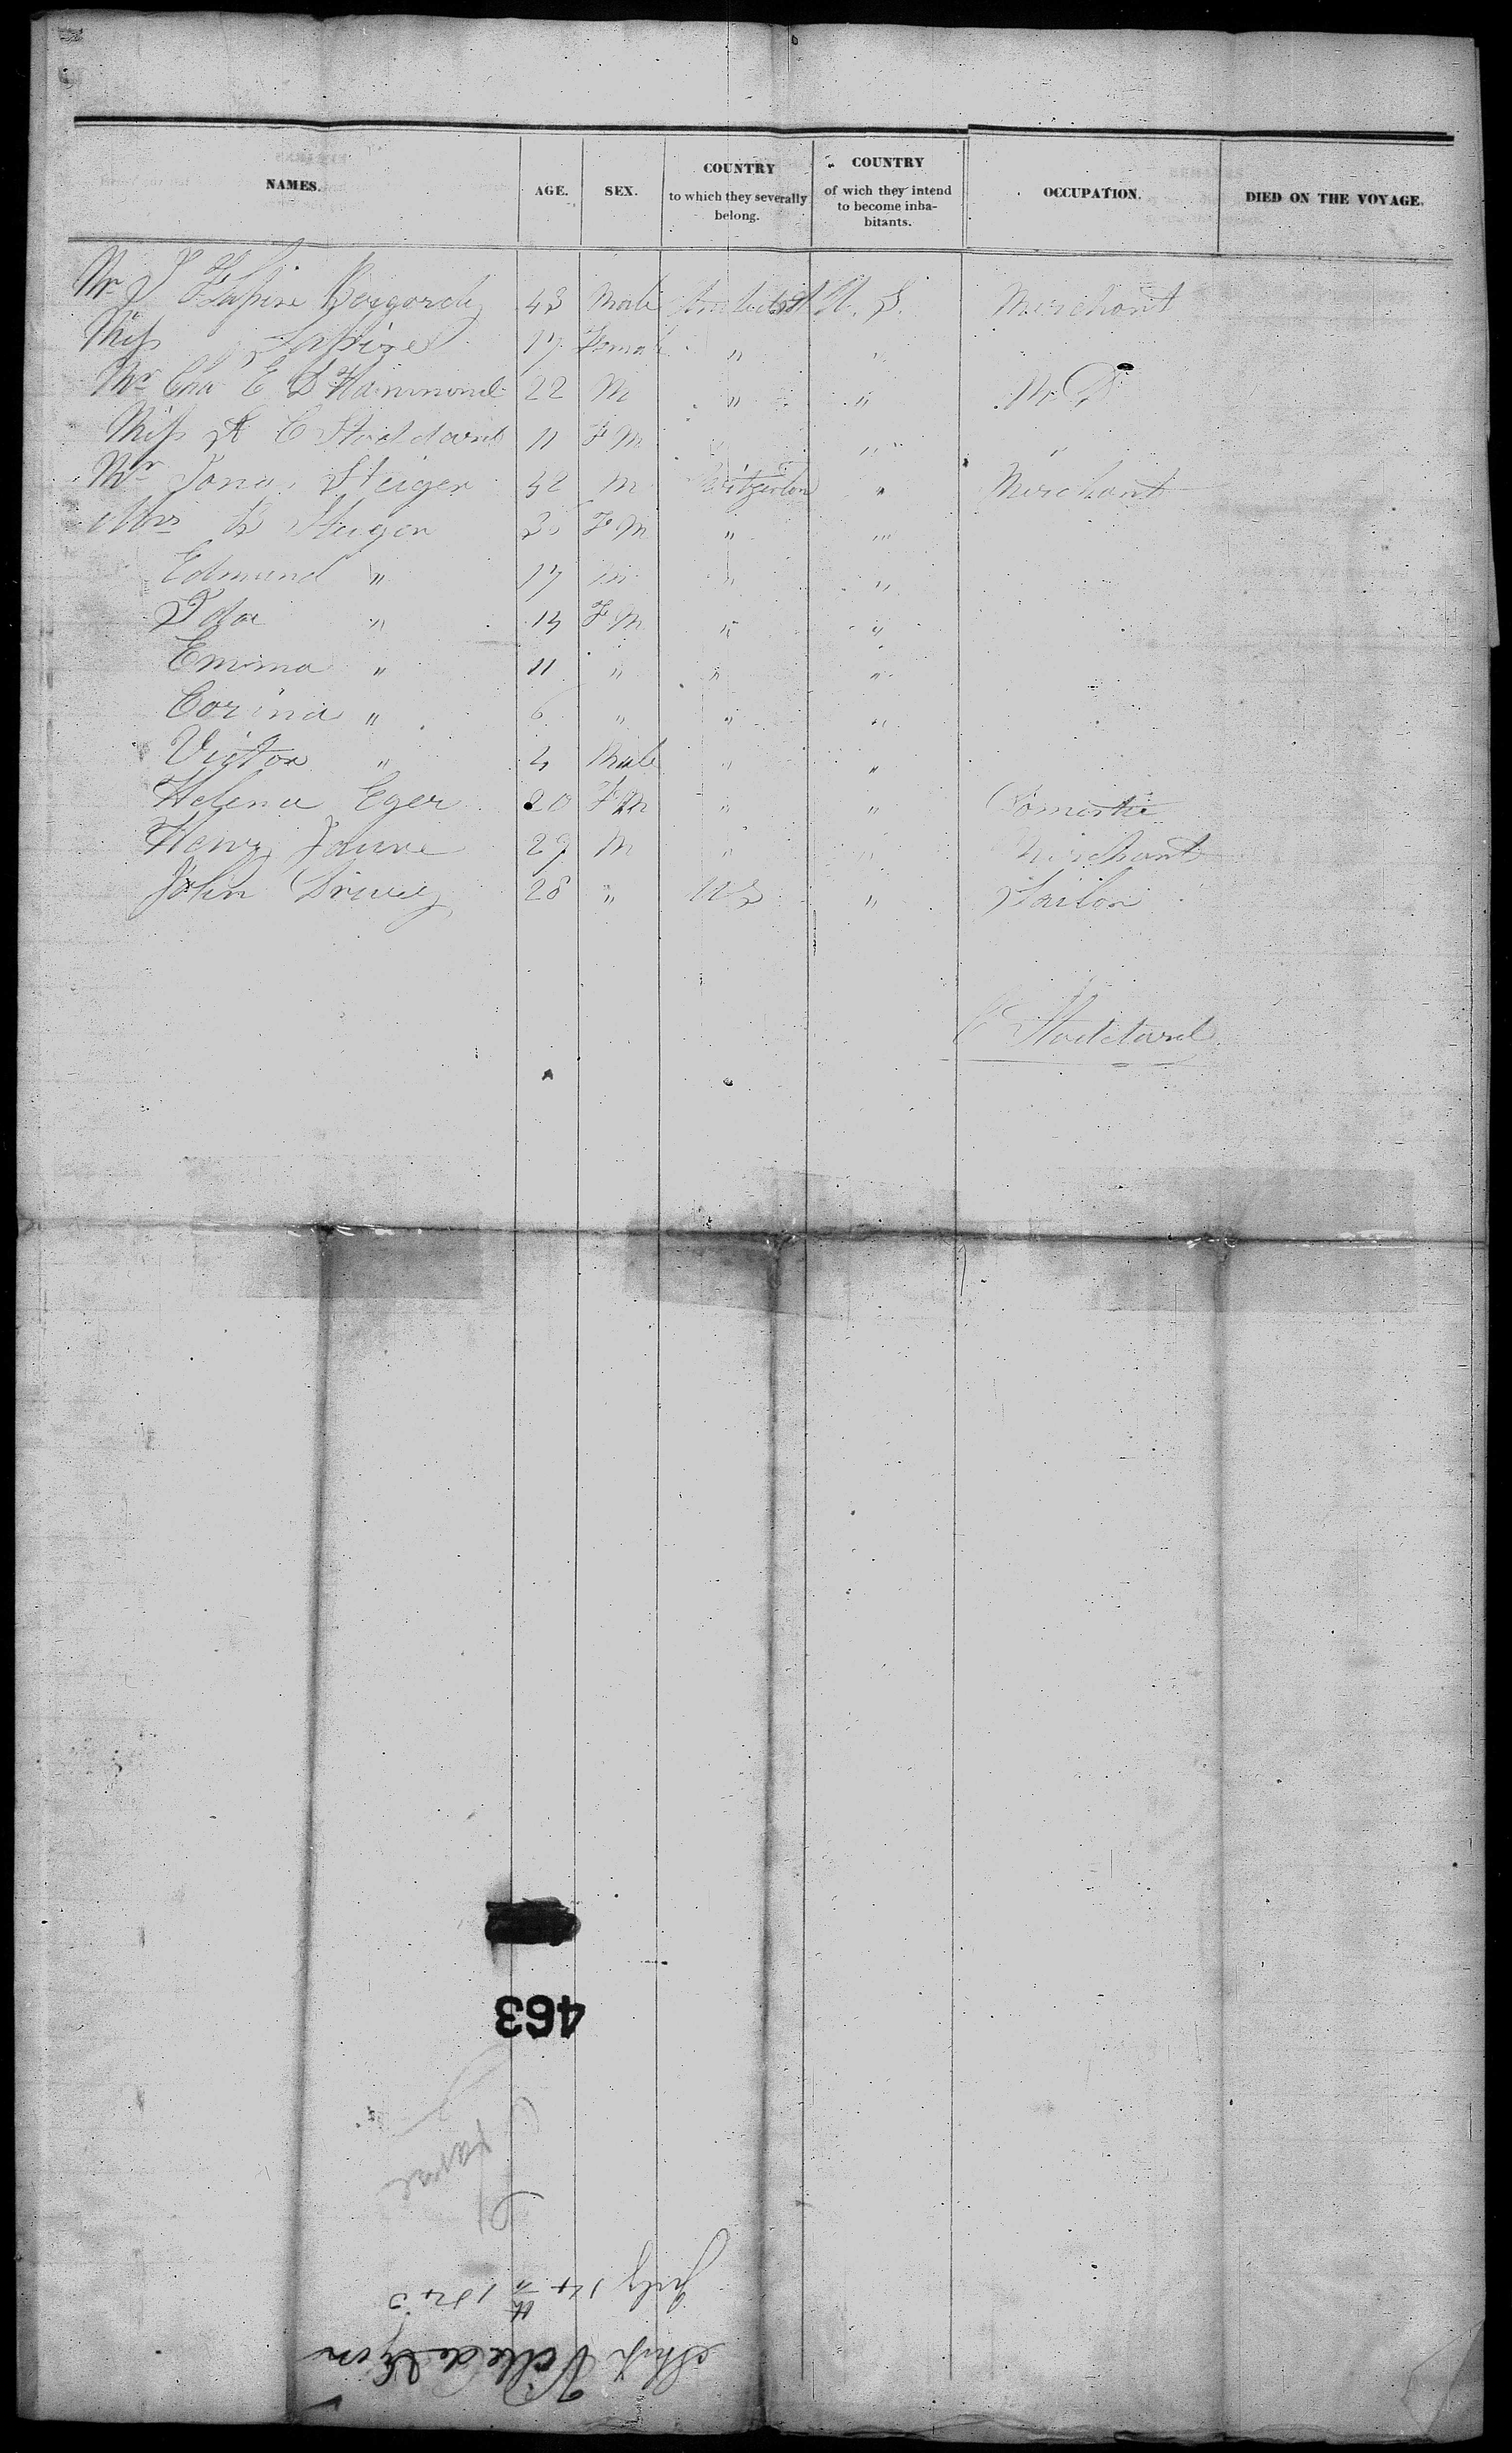 NAMES. AGE. SEX. COUNTRY to which they severally belong. COUNTRY of wich they intend to become inhabitants. OCCUPATION. DIED ON THE VOYAGE.
Mr J 43 Male U. S. Merchant
Miss 17 Female " "
Mr Cha E D Hammond 22 M " " M. D
Miss A C Stoddard 11 F M " " "
Mr Steiger 42 M Switzerlan " Merchant
Mrs B Steiger F M " "
Edmund " 17 m " "
Ida " 14 F M " "
Emma " 11 " " "
Corina " 6 " " "
Victor " 4 Male " "
Helena Eger 20 F M " " Domestic
Henry 29 M " " Merchant
John 28 " U S " Sailor
C Stoddard
463
Havre
July 14th 184
Ship Ville de Lyon